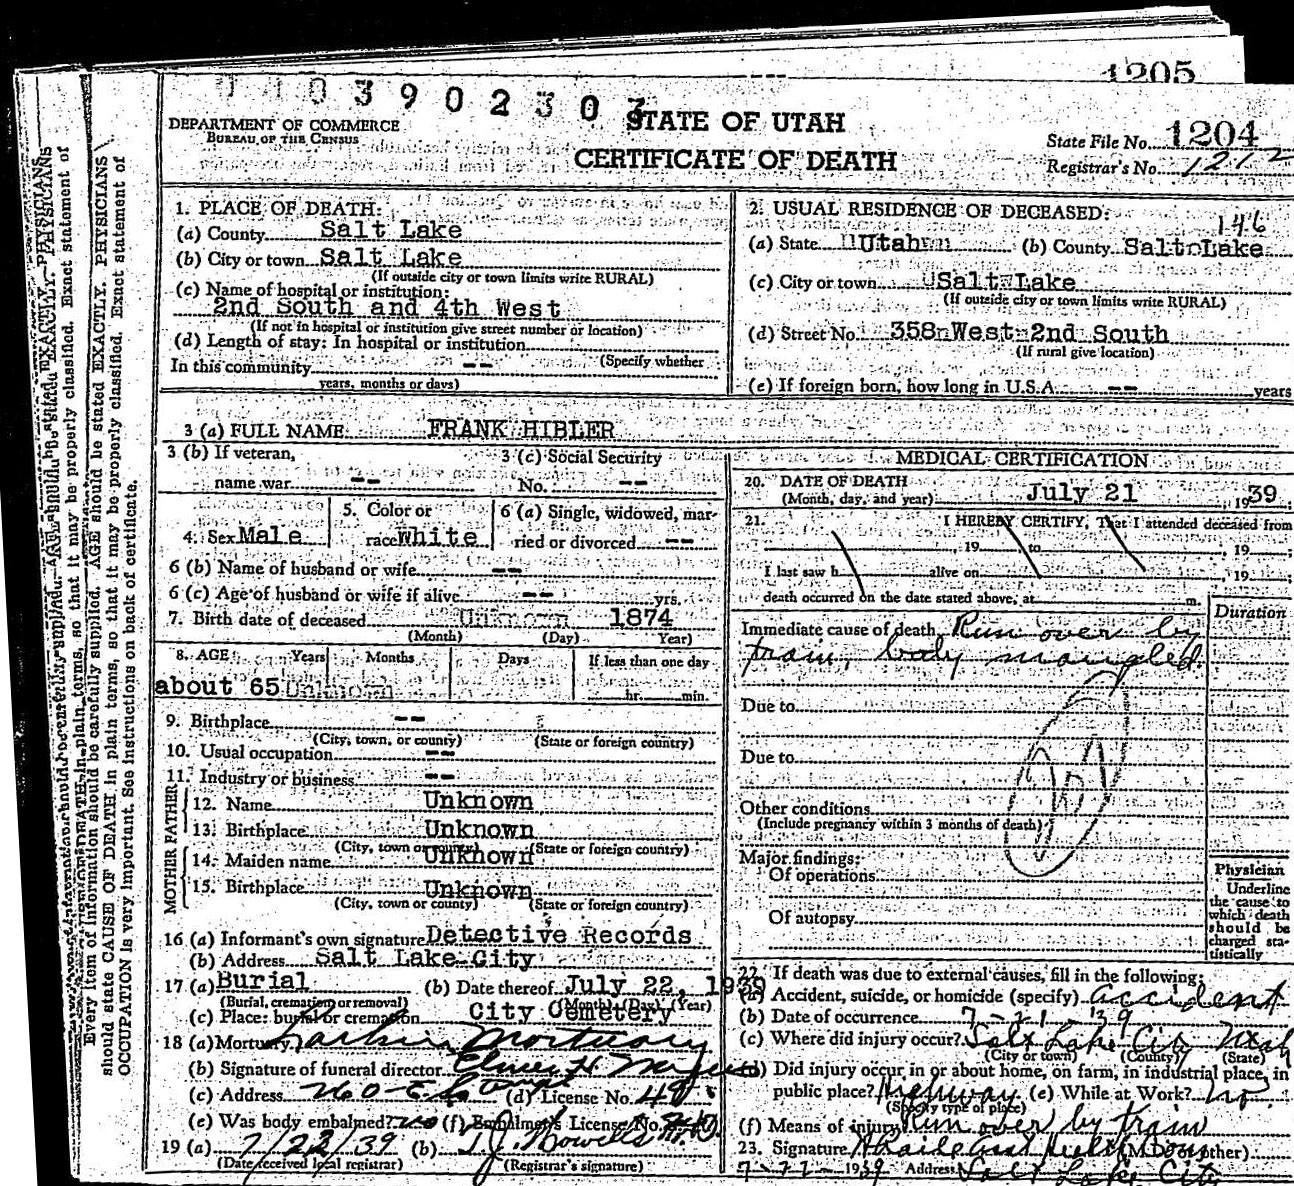 1205
0 1 0 3 9 0 2 3 0 3
STATE OF UTAH
CERTIFICATE OF DEATH
DEPARTMENT OF COMMERCE
BUREAU OF THE CENSUS
State File No. 1204
Registrar's No. 1212
1. PLACE OF DEATH:
(a) County Salt Lake
(b) City or town Salt Lake
(If outside city or town limits write RURAL)
(c) Name of hospital or institution:
2nd South and 4th West
(If not in hospital or institution give street number or location)
(d) Length of stay: In hospital or institution
(Specify whether
In this community --
years, months or days)
2. USUAL RESIDENCE OF DECEASED:
146
(a) State Utah (b) County Salt Lake
(c) City or town Salt Lake
(If outside city or town limits write RURAL)
(d) Street No. 358 West 2nd South
(If rural give location)
(e) If foreign born, how long in U.S.A. -- years
3 (a) FULL NAME FRANK HIBLER
3 (b) If veteran,
name war --
3 (c) Social Security
No. --
4. Sex Male
5. Color or
race White
6 (a) Single, widowed, mar-
ried or divorced --
6 (b) Name of husband or wife --
6 (c) Age of husband or wife if alive -- yrs.
7. Birth date of deceased Unknown 1874
(Month) (Day) Year)
8. AGE Years Months Days If less than one day
about 65 Unknown hr. min.
9. Birthplace --
(City, town, or county) (State or foreign country)
10. Usual occupation --
11. Industry or business --
FATHER
12. Name Unknown
13. Birthplace Unknown
(City, town or county) (State or foreign country)
MOTHER
14. Maiden name Unknown
15. Birthplace Unknown
(City, town or county) (State or foreign country)
16 (a) Informant's own signature Detective Records
(b) Address Salt Lake City
17 (a) Burial (b) Date thereof July 22, 1939
(Burial, cremation or removal) (Month) (Day) (Year)
(c) Place: burial or cremation City Cemetery
18 (a) Mortuary Larkin Mortuary
(b) Signature of funeral director Elmer H.
(c) Address 260 E. So. Temple (d) License No. 48
(e) Was body embalmed? no (f) Embalmer's License No.
19 (a) 7/22/39 (b) T.J. Howells M.D.
(Date received local registrar) (Registrar's signature)
MEDICAL CERTIFICATION
20. DATE OF DEATH
(Month, day, and year) July 21, 1939
21. I HEREBY CERTIFY, That I attended deceased from
, 19 to , 19 ;
I last saw h alive on , 19 ;
death occurred on the date stated above, at m.
Duration
Immediate cause of death Run over by
train, body mangled.
Due to
Due to
Other conditions
(Include pregnancy within 3 months of death)
Major findings:
Of operations
Of autopsy
Physician
Underline
the cause to
which death
should be
charged sta-
tistically
22. If death was due to external causes, fill in the following:
(a) Accident, suicide, or homicide (specify) accident
(b) Date of occurrence 7-21-39
(c) Where did injury occur? Salt Lake City Utah
(City or town) (County) (State)
(d) Did injury occur in or about home, on farm, in industrial place, in
public place? Highway (e) While at Work? no.
(Specify type of place)
(f) Means of injury Run over by train
23. Signature (M.D. or other)
1939 Address Salt Lake City
Every item of information should be carefully supplied. AGE should be stated EXACTLY. PHYSICIANS
should state CAUSE OF DEATH in plain terms, so that it may be properly classified. Exact statement of
OCCUPATION is very important. See instructions on back of certificate.